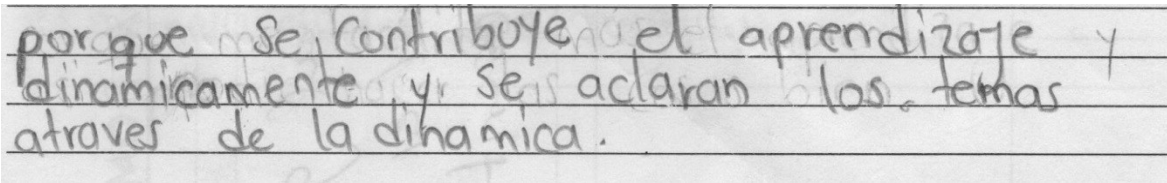 porque se contribuye el aprendizaje y
dinamicamente y se aclaran los temas
atraves de la dinamica.